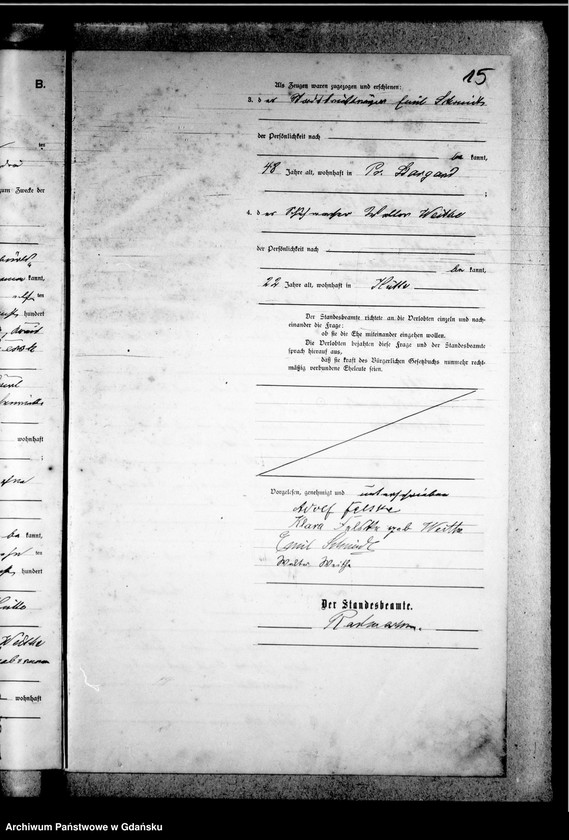 B.
15
Als Zeugen waren zugezogen und erschienen:
3. der Emil Schmidt
der Persönlichkeit nach
be kannt,
48 Jahre alt, wohnhaft in Pr. Stargard
;
4. der Schuhmacher Walter Weithe
der Persönlichkeit nach
be kannt,
22 Jahre alt, wohnhaft in Hütte
Der Standesbeamte richtete an die Verlobten einzeln und nach-
einander die Frage:
ob sie die Ehe miteinander eingehen wollen.
Die Verlobten bejahten diese Frage und der Standesbeamte
sprach hierauf aus,
daß sie kraft des Bürgerlichen Gesetzbuchs nunmehr recht-
mäßig verbundene Eheleute seien.
Vorgelesen, genehmigt und unterschrieben
Adolf Felske
Klara Felske geb Weithe
Emil Schmidt
Walter Weithe
Der Standesbeamte.
ten
zum Zwecke der
kannt,
ten
hundert
wohnhaft
;
be kannt,
ten
hundert
Hütte
Weithe
geborenen
wohnhaft
Archiwum Państwowe w Gdańsku